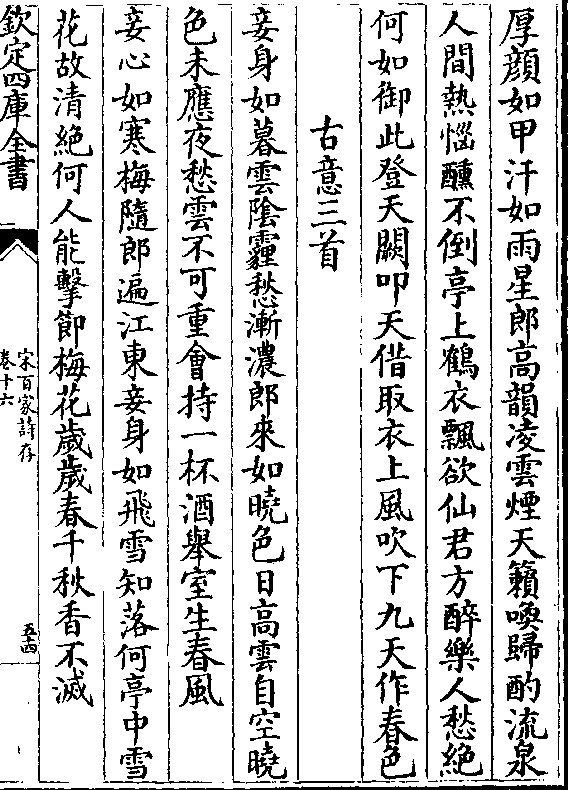 厚顔如甲汗如雨星郎高韻凌雲煙天籟喚歸酌流泉
人間熱惱醺不倒亭上鶴衣飄欲仙君方醉樂人愁絶
何如御此登天闕叩天借取衣上風吹下九天作春色
古意三首
妾身如暮雲隂霾愁漸濃郎來如曉色日高雲自空曉
色未應夜愁雲不可重會持一杯酒舉室生春風
妾心如寒梅隨郎遍江東妾身如飛雪知落何亭中雪
花故清絶何人能擊節梅花歳歳春千秋香不滅
欽定四庫全書
宋百家詩存
卷十六
五四